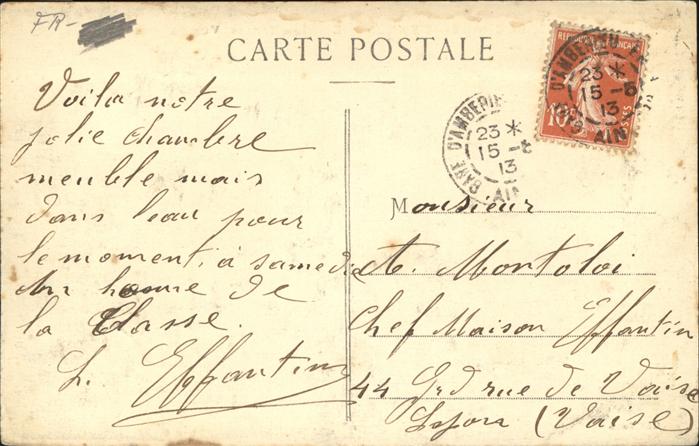 FR-
CARTE POSTALE
REPUBLIQUE FRANÇAISE
10
POSTES
GARE D'AMBERIEU
23 *
15 -6
13
AIN
GARE D'AMBERIEU
23 *
15 -6
13
AIN
Voila notre
jolie chambre
meublé mais
dans l'eau pour
le moment, à samedi
de
la Classe.
L. Effantin
Monsieur
A. Montoloi
Chef Maison Effantin
44 Grd rue de Vaise
(Vaise)